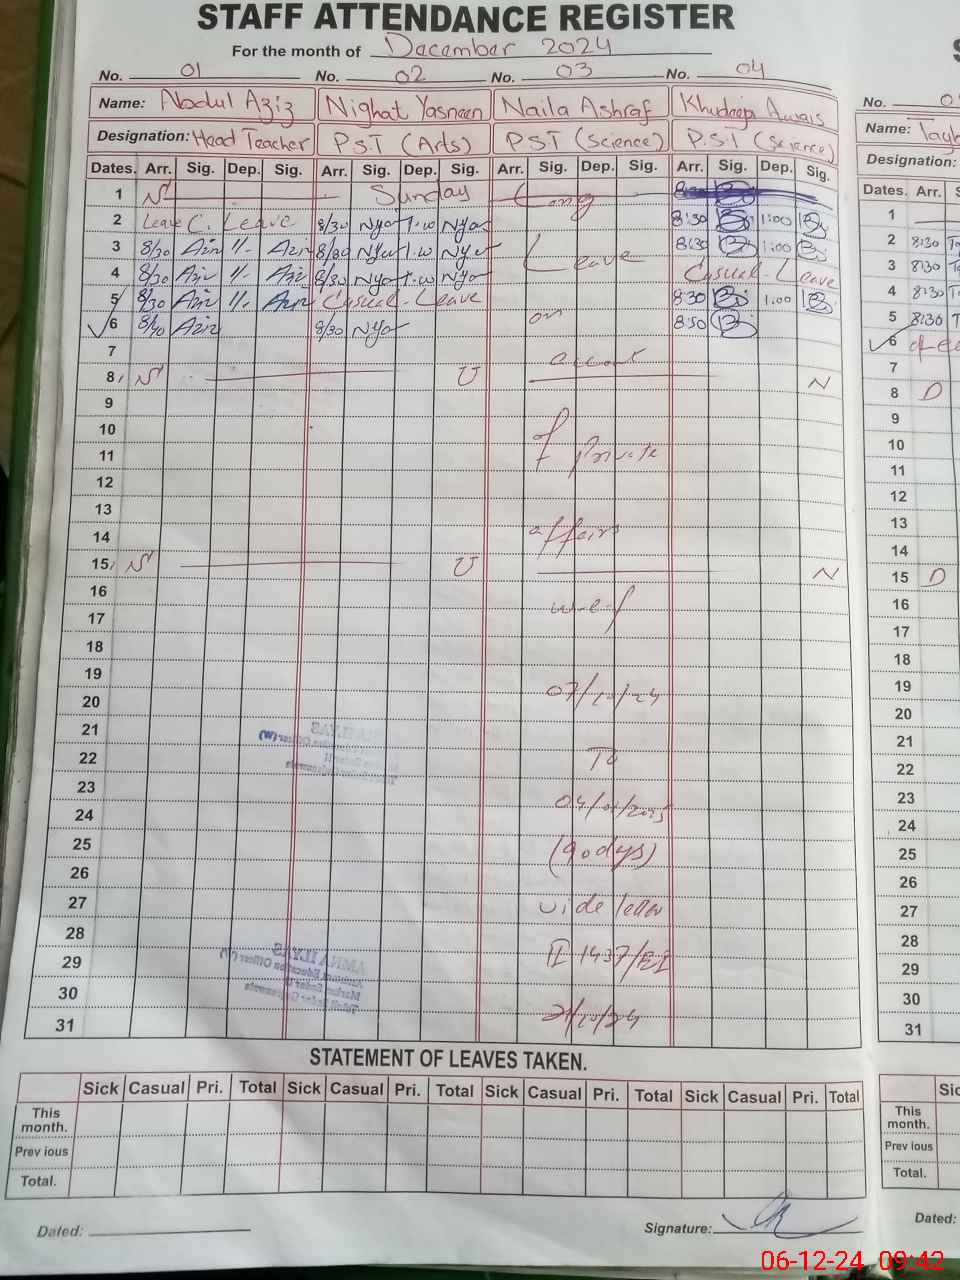 STAFF ATTENDANCE REGISTER
For the month of December 2024
No. 01 No. 02 No. 03 No. 04 No.
Name: Abdul Aziz Nighat Yasneen Naila Ashraf Khudeeja Awais Name:
Designation: Head Teacher P.S.T (Arts) P.S.T (Science) P.S.T (Science) Designation:
Dates. Arr. Sig. Dep. Sig. Arr. Sig. Dep. Sig. Arr. Sig. Dep. Sig. Arr. Sig. Dep. Sig. Dates. Arr.
1 S Sunday Long 1
2 Leave C. Leave 8/30 8:30 1:00 2 8:30
3 8/30 Aziz 11. Aziz 8/30 Leave 8:30 1:00 3 8:30
4 8/30 Aziz 11. Aziz 8/30 Casual-Leave 4 8:30
5 8/30 Aziz 11. Aziz Casual-Leave 8:30 1:00 5 8:30
6 Aziz 8/30 on 8:50 6
7 account 7
8 S U N 8 D
9 9
10 of 10
11 Private 11
12 12
13 13
14 affairs 14
15 S U N 15 D
16 w-e-f 16
17 17
18 18
19 07/10/24 19
20 20
21 21
22 To 22
23 23
24 04/01/2025 24
25 (90 days) 25
26 26
27 vide letter 27
28 28
29 1437/EI 29
30 30
31 21/10/24 31
AMNA ILYAS
STATEMENT OF LEAVES TAKEN.
Sick Casual Pri. Total Sick Casual Pri. Total Sick Casual Pri. Total Sick Casual Pri. Total
This month. This month.
Prev ious Prev ious
Total. Total.
Dated: Signature: Dated:
06-12-24 09:42